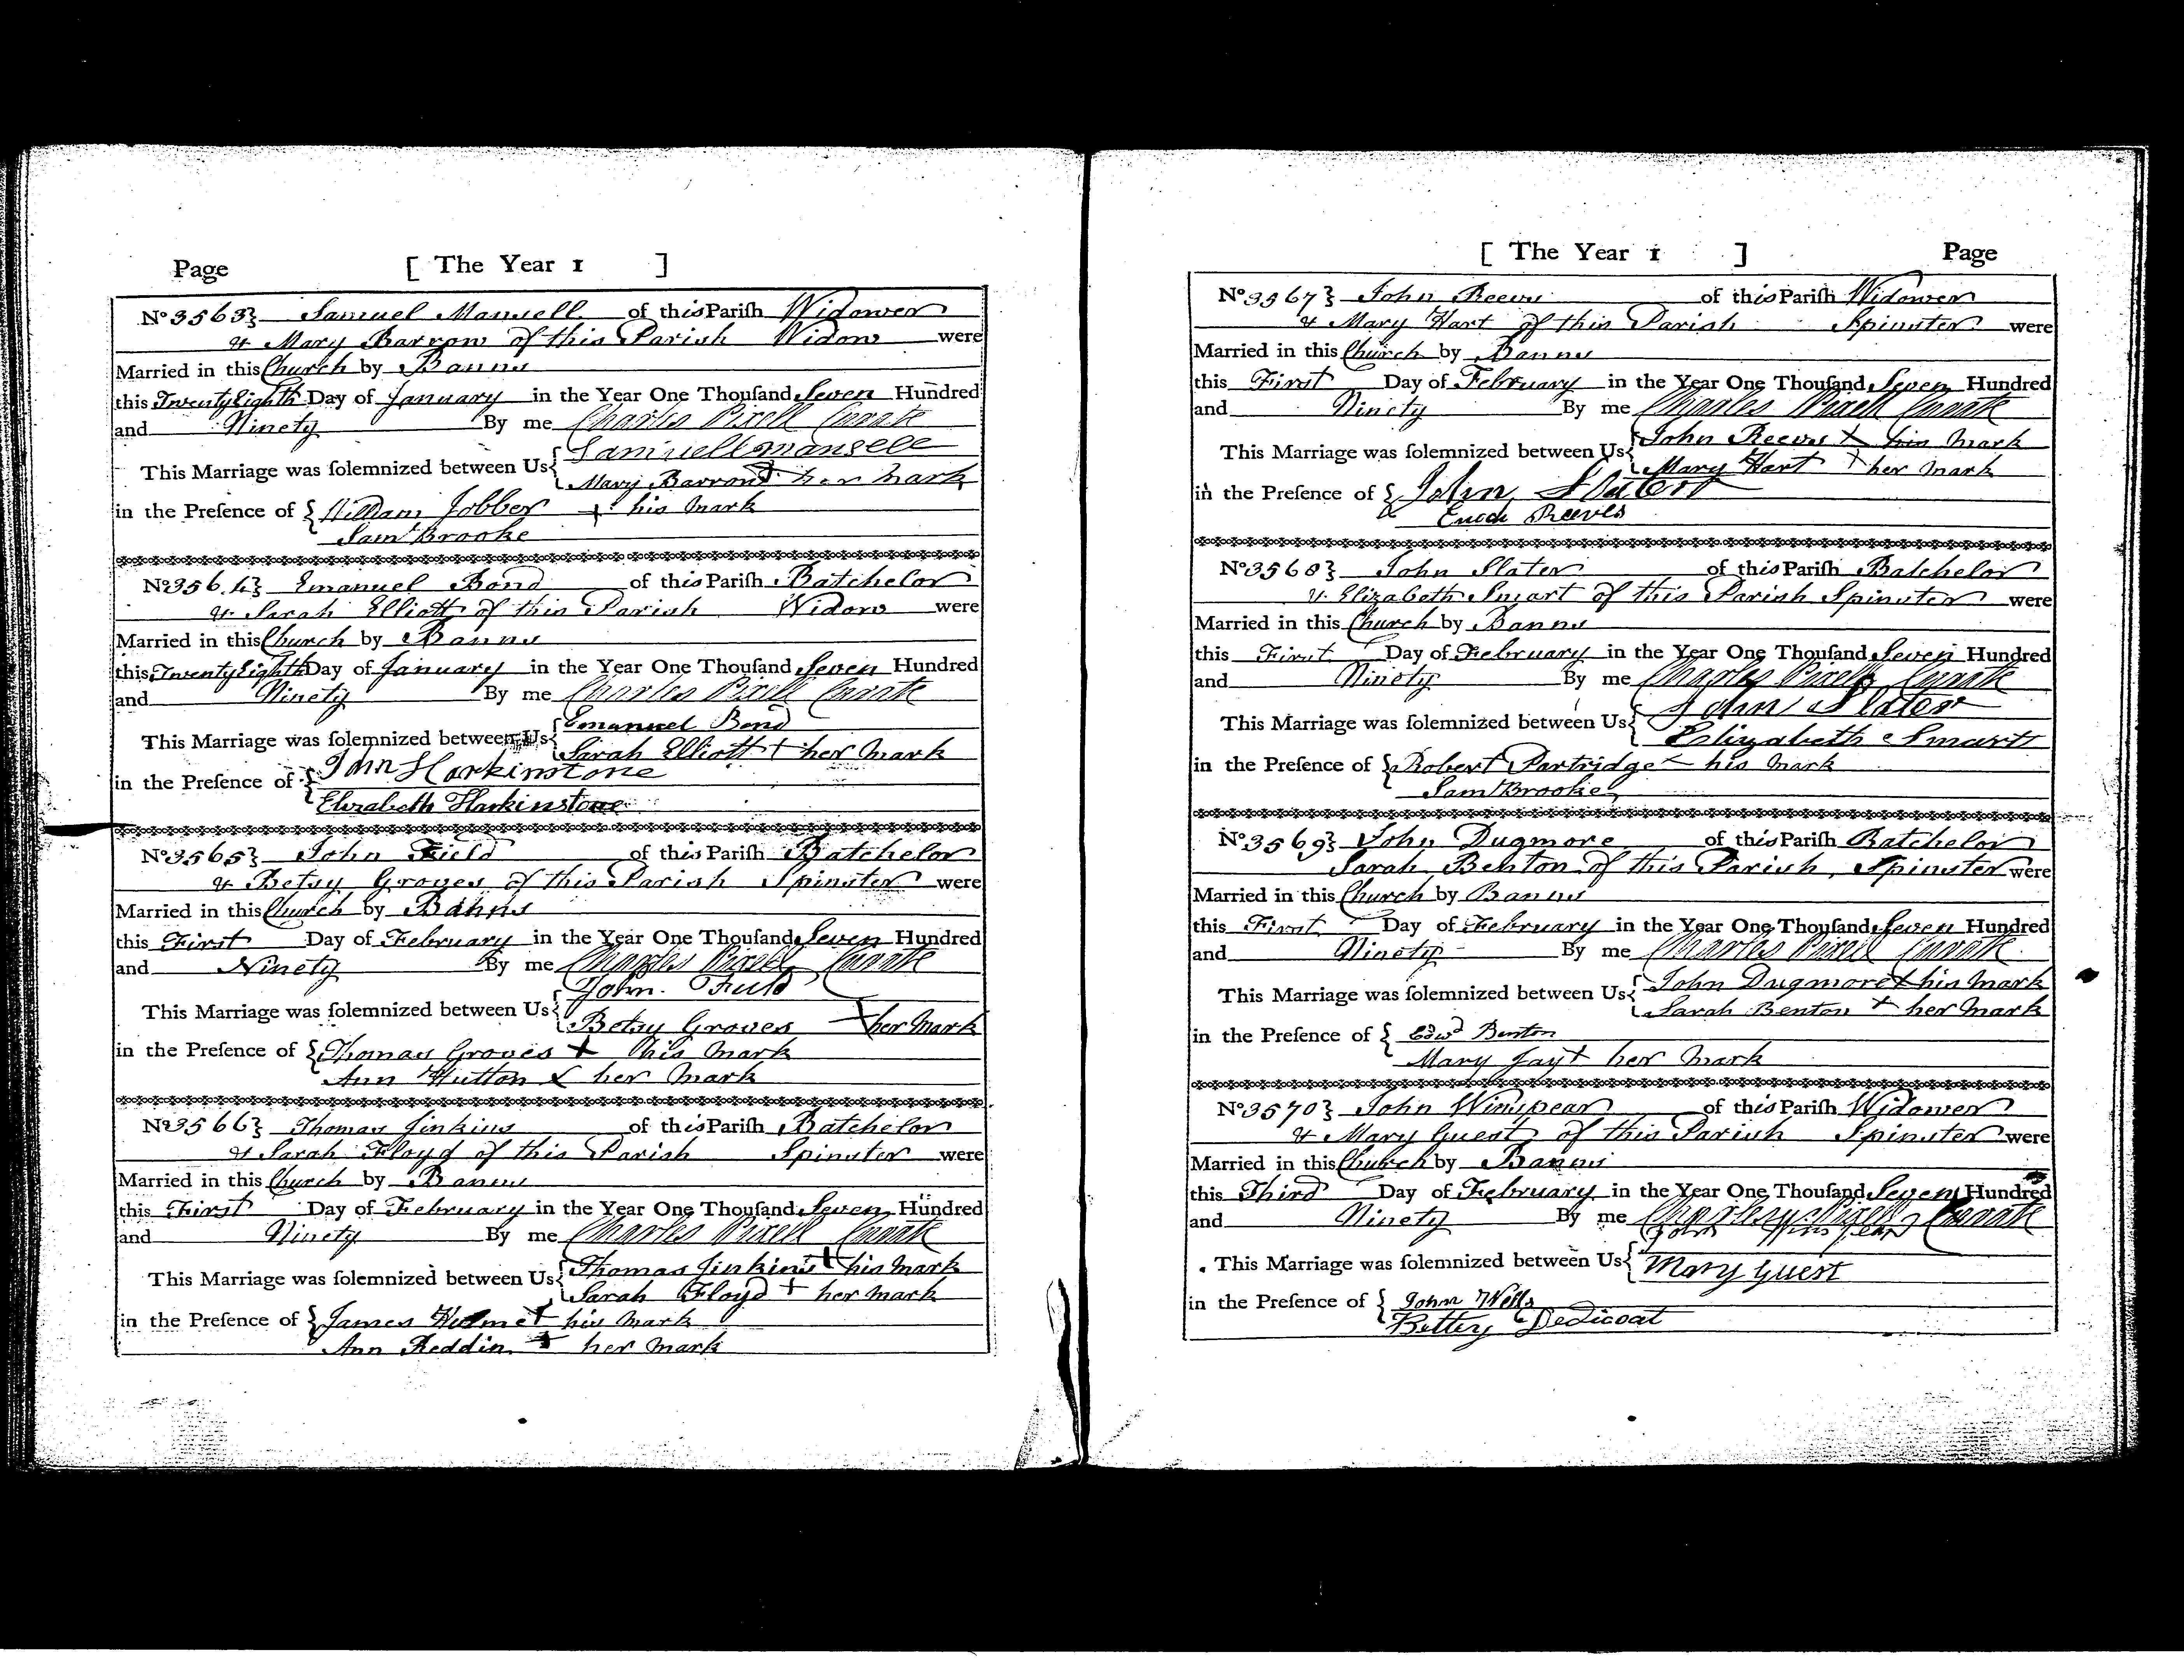 Page [ The Year 1 ]
No 3563} Samuel Mansell of this Parish Widower
& Mary Barrow of this Parish Widow were
Married in this Church by Banns
this Twenty Eighth Day of January in the Year One Thousand Seven Hundred
and Ninety By me Charles Pixell Curate
This Marriage was solemnized between Us { Samuell Mansell
Mary Barrow + her mark
in the Presence of { William Jobber + his mark
Saml Brooke
No 3564} Emanuel Bond of this Parish Batchelor
& Sarah Elliott of this Parish Widow were
Married in this Church by Banns
this Twenty Eighth Day of January in the Year One Thousand Seven Hundred
and Ninety By me Charles Pixell Curate
This Marriage was solemnized between Us { Emanuel Bond
Sarah Elliott + her mark
in the Presence of { John Harkinstone
Elizabeth Harkinstone
No 3565} John Field of this Parish Batchelor
& Betsy Groves of this Parish Spinster were
Married in this Church by Banns
this First Day of February in the Year One Thousand Seven Hundred
and Ninety By me Charles Pixell Curate
This Marriage was solemnized between Us { John Field
Betsy Groves + her mark
in the Presence of { Thomas Groves + his mark
Ann Hutton x her mark
No 3566} Thomas Jinkins of this Parish Batchelor
& Sarah Floyd of this Parish Spinster were
Married in this Church by Banns
this First Day of February in the Year One Thousand Seven Hundred
and Ninety By me Charles Pixell Curate
This Marriage was solemnized between Us { Thomas Jinkins + his mark
Sarah Floyd + her mark
in the Presence of { James + his mark
Ann Reddin + her mark
[ The Year 1 ] Page
No 3567} John Reeves of this Parish Widower
& Mary Hart of this Parish Spinster were
Married in this Church by Banns
this First Day of February in the Year One Thousand Seven Hundred
and Ninety By me Charles Pixell Curate
This Marriage was solemnized between Us { John Reeves + his mark
Mary Hart + her mark
in the Presence of { John Slater
& Enoch Reeves
No 3568} John Slater of this Parish Batchelor
& Elizabeth Smart of this Parish Spinster were
Married in this Church by Banns
this First Day of February in the Year One Thousand Seven Hundred
and Ninety By me Charles Pixell Curate
This Marriage was solemnized between Us { John Slater
Elizabeth Smart
in the Presence of { Robert Partridge – his mark
Saml Brooke
No 3569} John Dugmore of this Parish Batchelor
Sarah Benton of this Parish Spinster were
Married in this Church by Banns
this First Day of February in the Year One Thousand Seven Hundred
and Ninety By me Charles Pixell Curate
This Marriage was solemnized between Us { John Dugmore + his mark
Sarah Benton + her mark
in the Presence of { Edwd Benton
Mary Jay + her mark
No 3570} John Winspear of this Parish Widower
& Mary Guest of this Parish Spinster were
Married in this Church by Banns
this Third Day of February in the Year One Thousand Seven Hundred
and Ninety By me Charles Pixell Curate
John Winspear
This Marriage was solemnized between Us { Mary Guest
in the Presence of { John Wells
Bettey Dedicoat